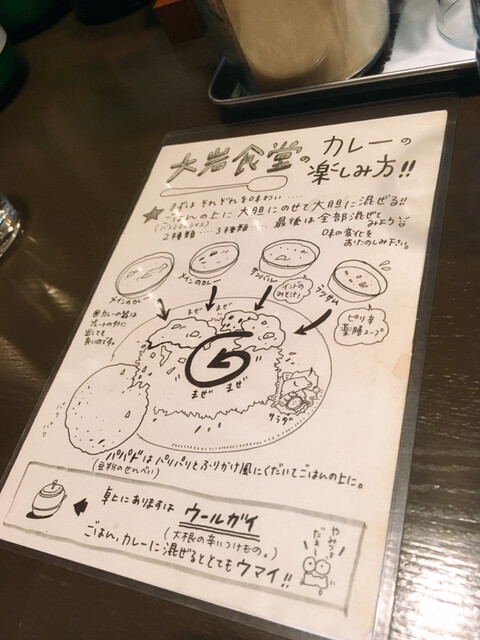 大岩食堂の カレーの
楽しみ方!!
まずは それぞれを味わい……
★ ごはんの上に 大胆にのせて 大胆に混ぜる!!
(バスマティライス)
2種類…3種類 最後は全部混ぜてみよう
味の変化を
おたのしみ下さい。
メインのカレー
メインのカレー
サンバル
インドのみそ汁!
ラッサム
ピリ辛
薬膳スープ
※カレーの器は
プレートの外に
出しても
良いのです。
まぜ まぜ
まぜ まぜ
サラダ
パパドはパリパリとふりかけ風にくだいてごはんの上に。
(豆粉のせんべい)
卓上にありますは ウールガイ
(大根の辛いつけもの。)
ごはん、カレーに混ぜるととてもウマイ!!
やみつき
だぁ〜